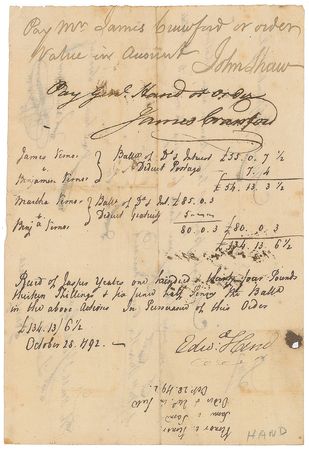 Pay Mr James Crawford or order
Value in Account John Shaw
Pay Genl. Hand or order
James Crawford
James Verner
Benjamin Verner
Balla of Ds Interest £55. 0. 7 ½
Deduct Postage 7. 4
£54. 13. 3 ½
Martha Verner
&
Benj Verner
Balla of Ds Int £85. 0. 3
Deduct 5
80. 0. 3 £80. 0. 3
£134. 13. 6 ½
Recd of Jasper Yeates one hundred & thirty four Pounds
thirteen Shillings & six pence half Penny the Balla
in the above Actions In Pursuance of this Order
£134. 13/6 ½
October 28. 1792.
Edwd Hand
Octr 28. 1792
Verner v. Verner
Same v. Same
HAND